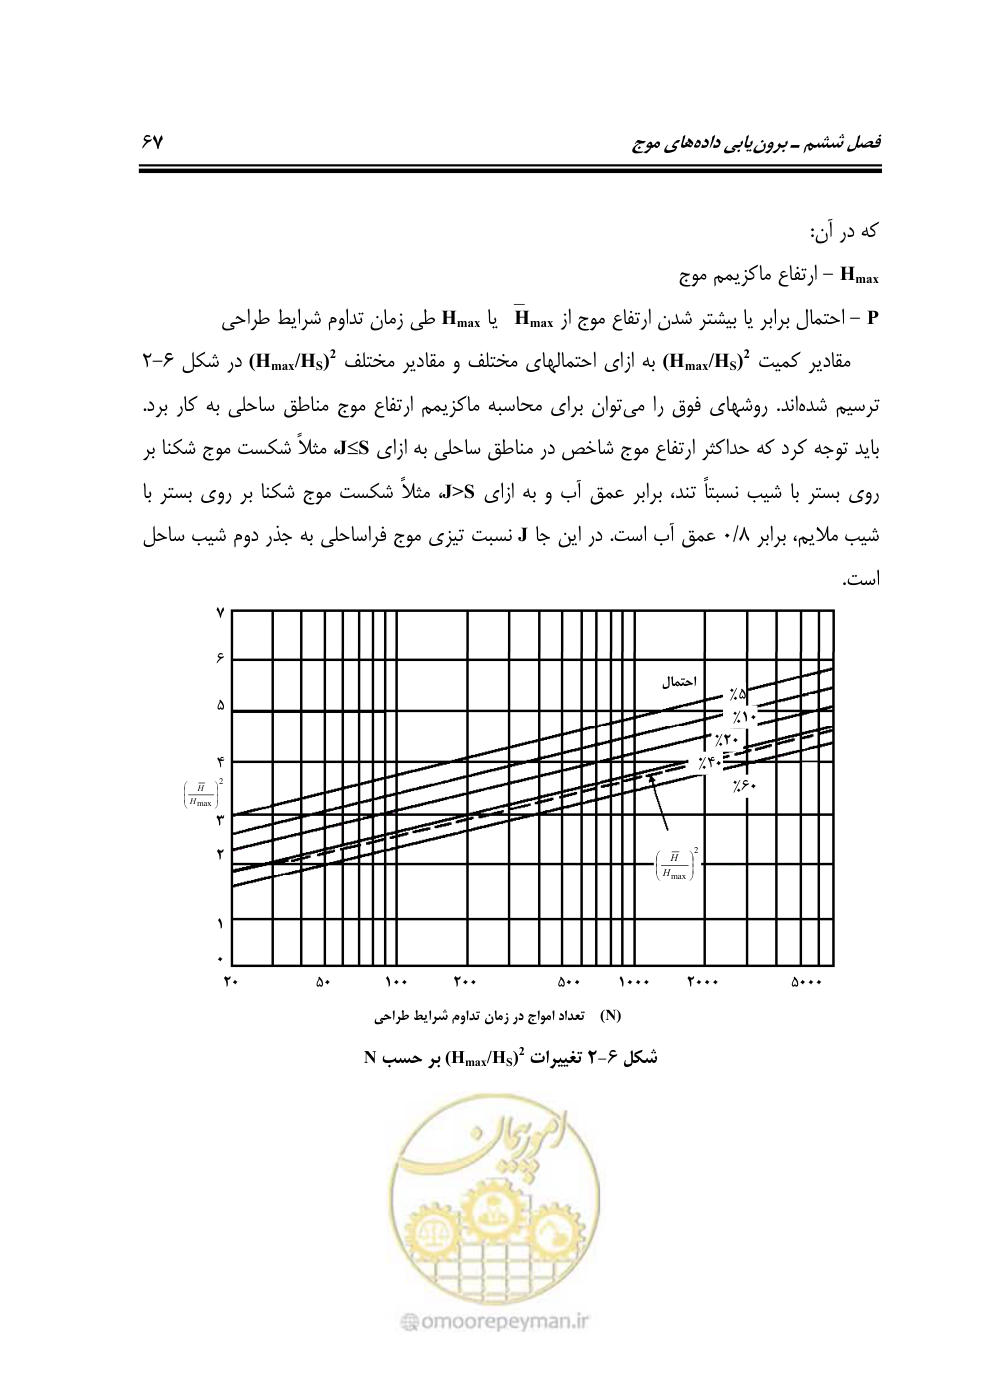 فصل ششم ـ برون‌یابی داده‌های موج ۶۷
که در آن:
Hmax – ارتفاع ماکزیمم موج
P – احتمال برابر یا بیشتر شدن ارتفاع موج از H̅max یا Hmax طی زمان تداوم شرایط طراحی
مقادیر کمیت (Hmax/HS)² به ازای احتمالهای مختلف و مقادیر مختلف (Hmax/HS)² در شکل ۶–۲
ترسیم شده‌اند. روشهای فوق را می‌توان برای محاسبه ماکزیمم ارتفاع موج مناطق ساحلی به کار برد.
باید توجه کرد که حداکثر ارتفاع موج شاخص در مناطق ساحلی به ازای J≤S، مثلاً شکست موج شکنا بر
روی بستر با شیب نسبتاً تند، برابر عمق آب و به ازای J>S، مثلاً شکست موج شکنا بر روی بستر با
شیب ملایم، برابر ۰/۸ عمق آب است. در این جا J نسبت تیزی موج فراساحلی به جذر دوم شیب ساحل
است.
۷
۶
۵
۴
۳
۲
۱
۰
(H̅/Hmax)²
احتمال
٪۵
٪۱۰
٪۲۰
٪۴۰
٪۶۰
(H̅/Hmax)²
۲۰ ۵۰ ۱۰۰ ۲۰۰ ۵۰۰ ۱۰۰۰ ۲۰۰۰ ۵۰۰۰
(N) تعداد امواج در زمان تداوم شرایط طراحی
شکل ۶–۲ تغییرات (Hmax/HS)² بر حسب N
امور پیمان
@omoorepeyman.ir